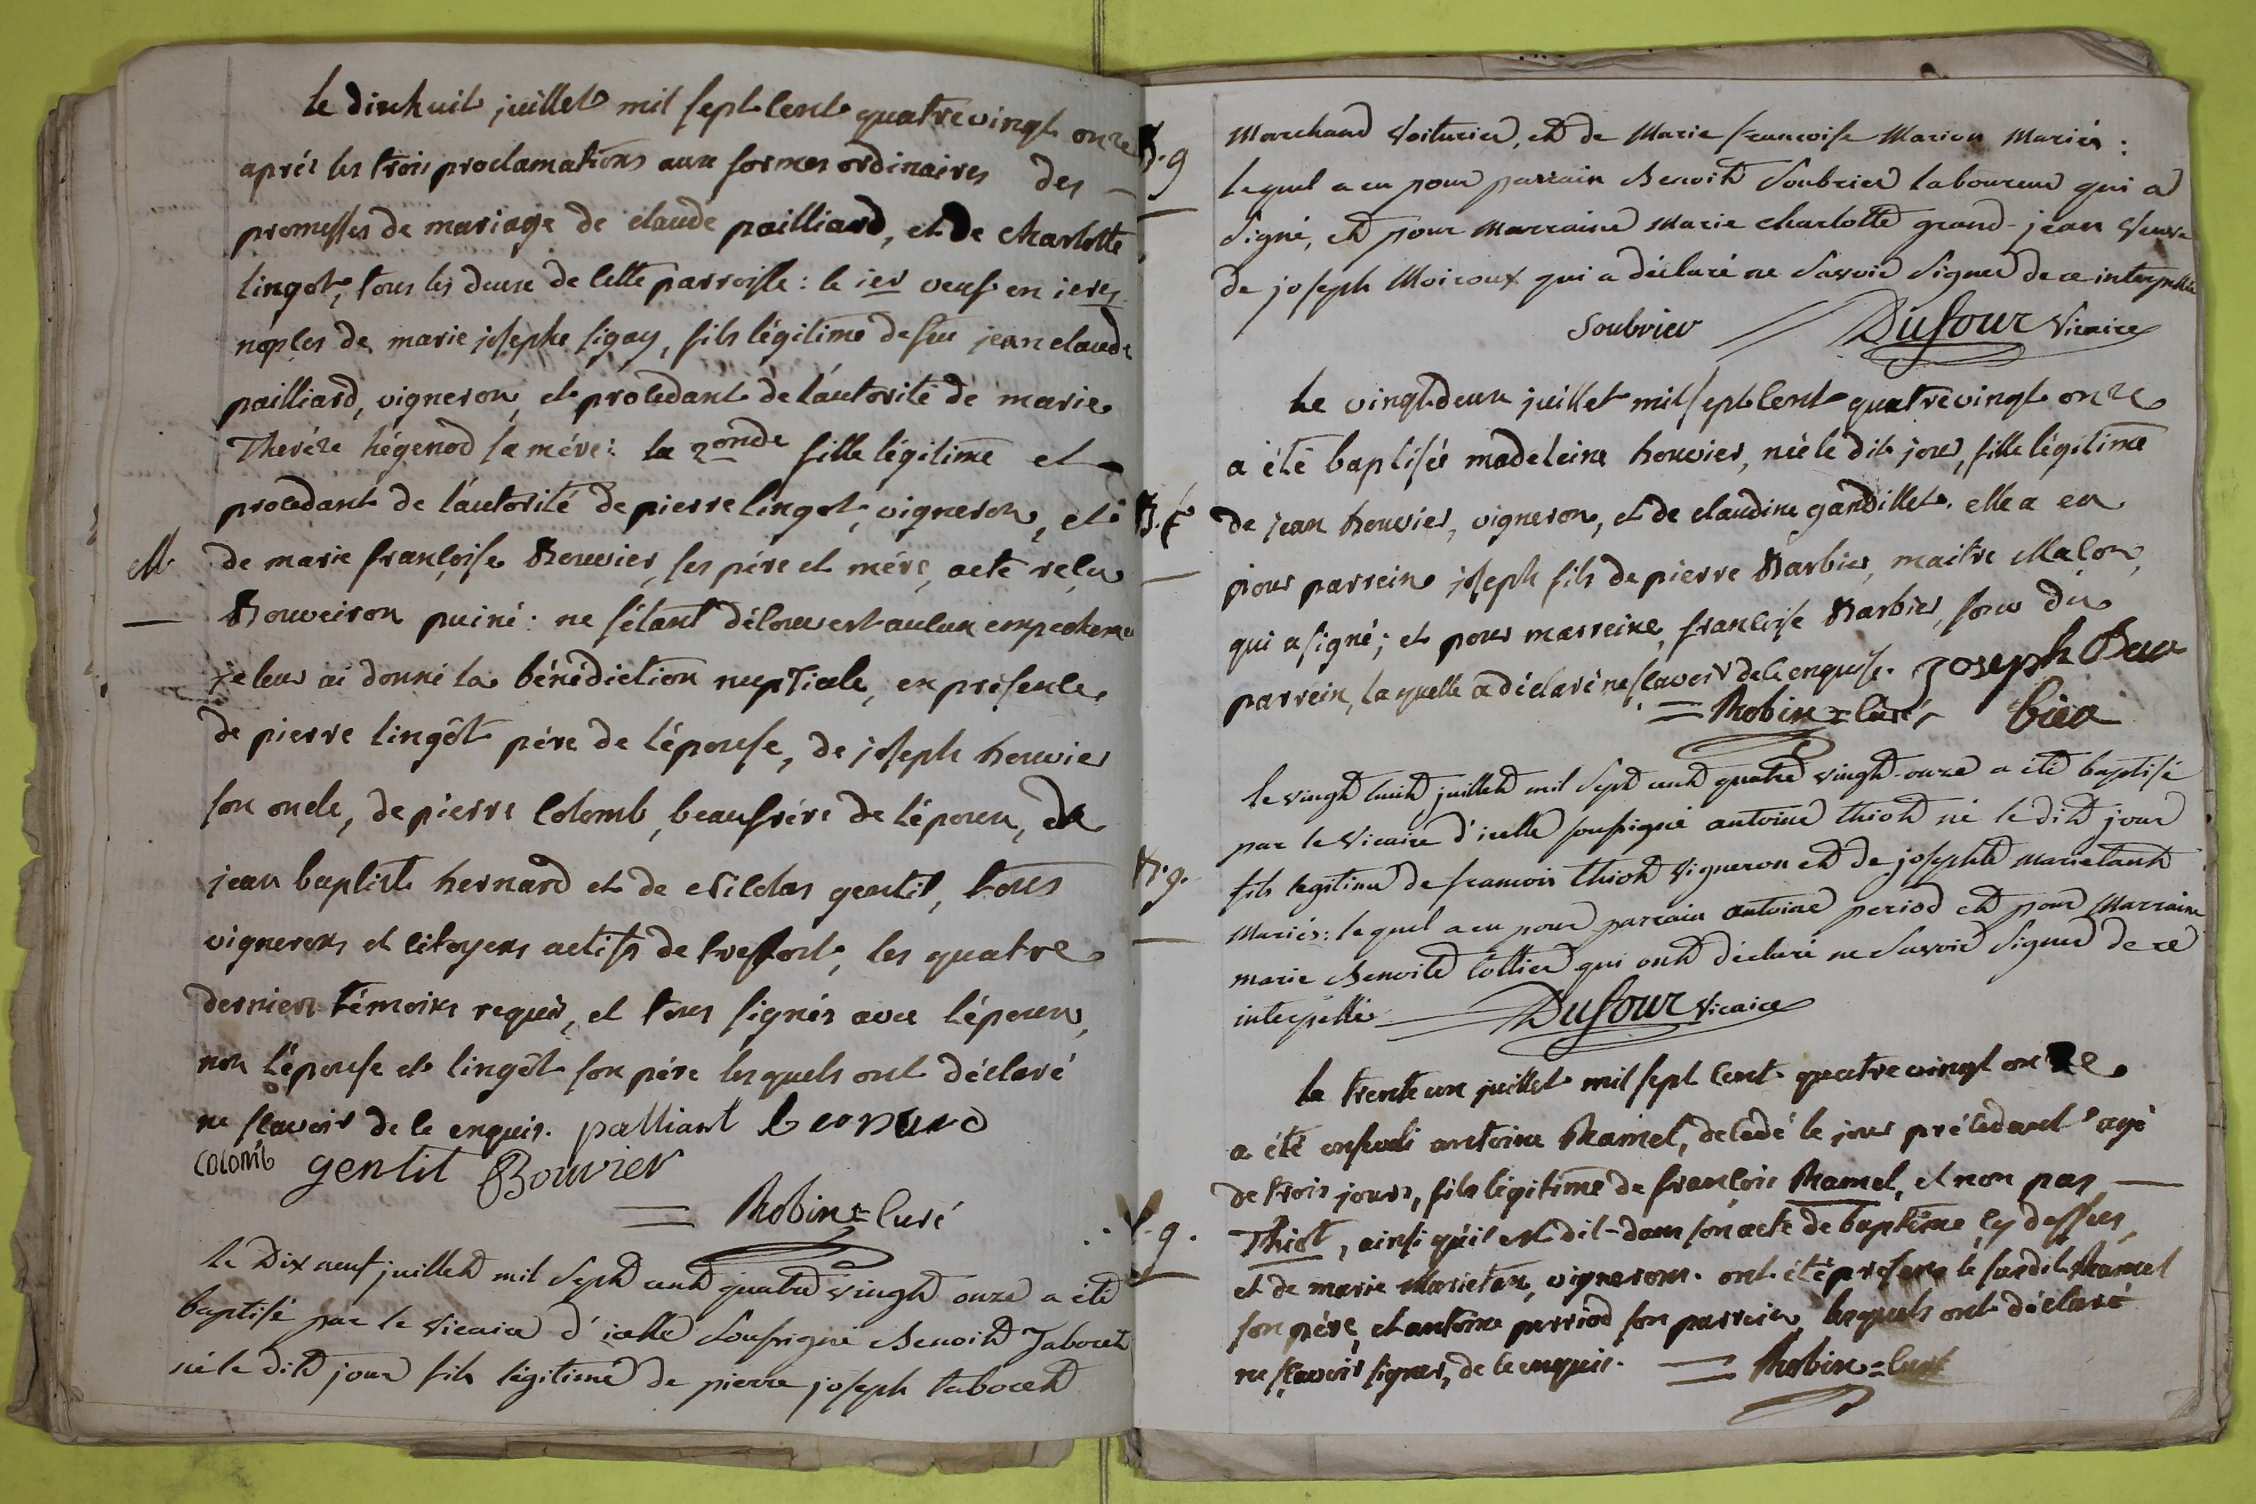 le dixhuit juillet mil sept cent quatrevingt onze
après les trois proclamations aux formes ordinaires des
promesses de mariage de claude pailliard, et de charlotte
lingot, tous les deux de cette parroisse : le ier veuf en ieres
noples de marie josephe figay, fils légitime de feu jean claude
pailliard, vigneron, et procedant de l'autorité de marie
Therèze hégenod sa mére : la 2onde fille légitime et
procedant de l'autorité de pierre lingot, vigneron, et
M. de marie françoise Bouvier, ses pére et mére, acte reçu
Bouveiron puiné : ne s'étant découvert aucun empecheme
je leur ai donné la bénédiction nuptiale, en présence
de pierre lingôt pére de l'épouse, de joseph bouvier
son oncle, de pierre Colomb, beaufrére de l'époux, de
jean baptiste bernard et de Nicolas gentil, tous
vignerons et citoyens actifs de treffort, les quatre
derniers témoins requis, et tous signés avec l'époux,
non l'épouse et lingôt son pére lesquels ont déclaré
ne sçavoir de ce enquis. palliard Bernard
COLOMB gentil Bouvier
= Robin = Curé
le Dix neuf juillet mil Sept cent quatre vingt onze a été
baptisé par le Vicaire d'icelle Soussigné Benoit Taboret
né le dit jour fils légitime de pierre joseph taboret
B.g Marchand Voiturier, et de Marie francoise Marion Mariés :
lequel a eu pour parrain Benoit Soubrier laboureur qui a
Signé, et pour Marraine Marie charlotte grand-jean Veuve
de joseph Moiroux qui a déclaré ne Savoir Signer de ce interpellée
Soubrier // Dufour Vicaire
Le vingtdeux juillet mil sept cent quatrevingt onze
a été baptisée madeleine bouvier, née le dit jour, fille légitime
B.f de jean bouvier, vigneron, et de claudine gandillet. elle a eu
pour parrein joseph fils de pierre Barbier, maitre Maçon,
qui a signé; et pour marreine, françoise Barbier, sœur du
parrein, laquelle a déclaré ne sçavoir de ce enquise. Joseph Bar
= Robin = Curé bier
le vingt huit juillet mil Sept cent quatre vingt-onze a été baptisé
par le Vicaire d'icelle soussigné antoine thiot né le dit jour
B.g. fils legitime de francois thiot Vigneron et de josephte Marietant
Mariés : lequel a eu pour parrain antoine period et pour Marraine
marie Benoite Cottier qui ont déclaré ne Savoir Signer de ce
interpellé Dufour Vicaire
le trente un juillet mil sept cent quatrevingt onze
a été enseveli antoine Ramel, decedé le jour précédant agé
de trois jours, fils légitime de françois Ramel, et non pas
S.g. Thiot, ainsi qu'il est dit dans son acte de baptême cy dessus,
et de marie Marietan, vignerons. ont été présens le susdit Ramel
son pére, et antoine perriod son parrein, lesquels ont déclaré
ne sçavoir signer, de ce enquis. = Robin = Curé